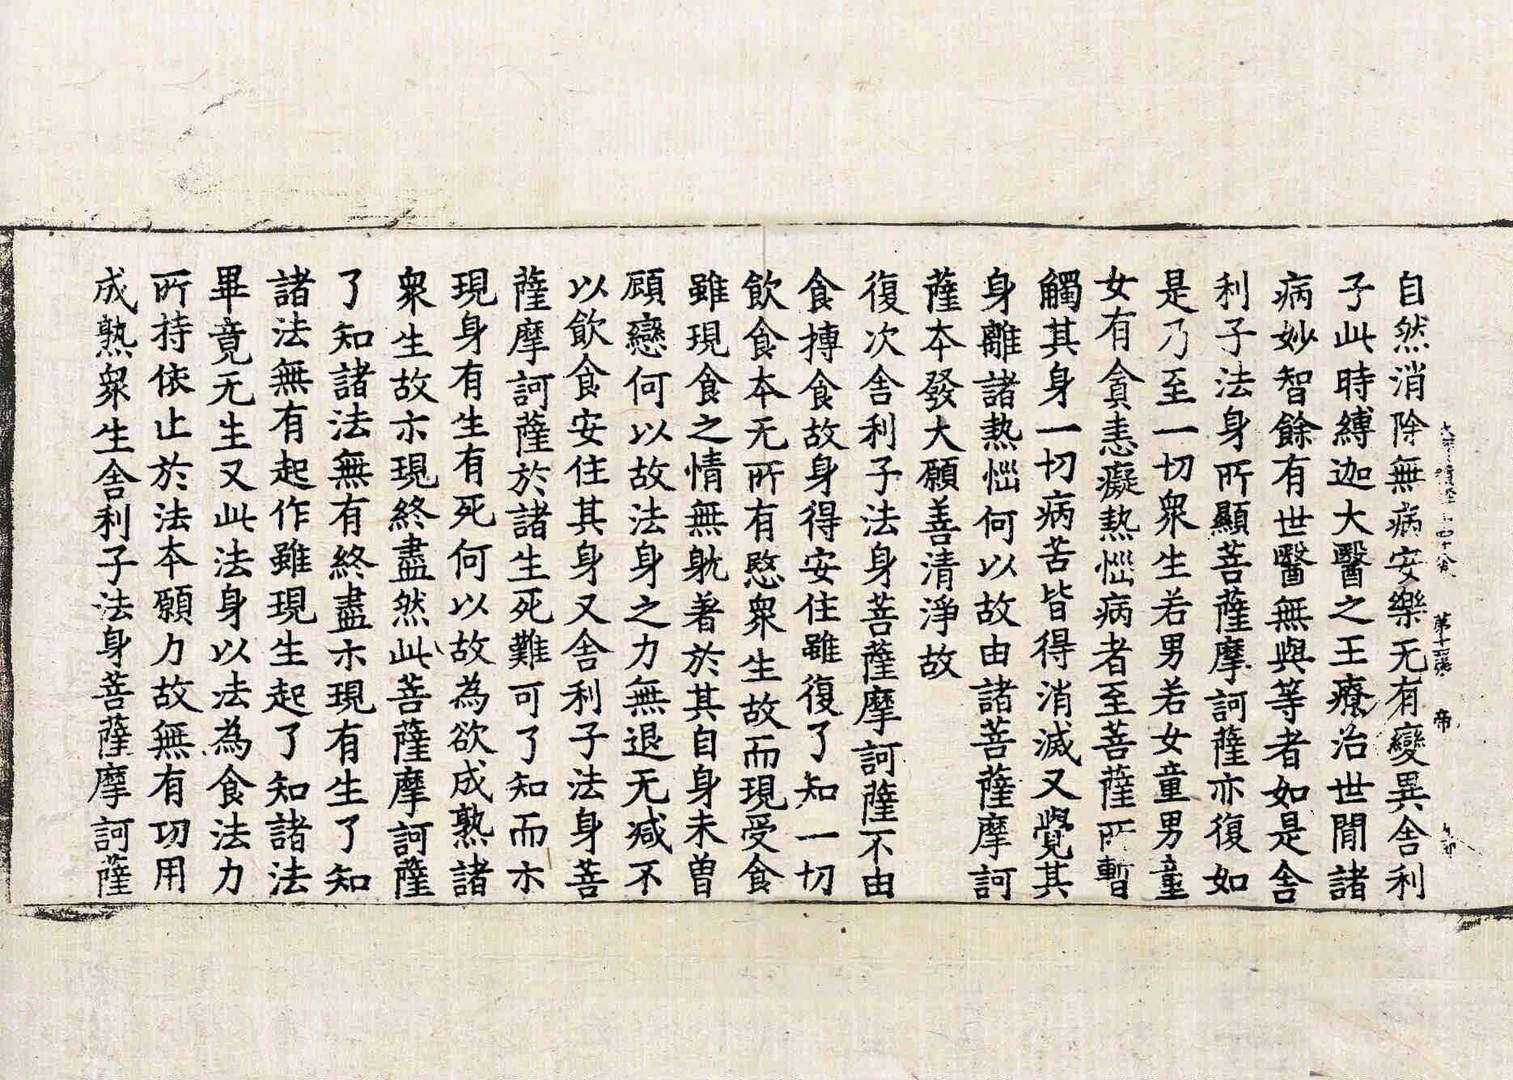 自然消除無病安樂无有變異舍利
子此時縛迦大醫之王療治世閒諸
病妙智餘有世醫無與等者如是舍
利子法身所顯菩薩摩訶薩亦復如
是乃至一切衆生若男若女童男童
女有貪恚癡熱惱病者至菩薩所暫
觸其身一切病苦皆得消滅又覺其
身離諸熱惱何以故由諸菩薩摩訶
薩本發大願善清淨故
復次舍利子法身菩薩摩訶薩不由
食摶食故身得安住雖復了知一切
飲食本无所有愍衆生故而現受食
雖現食之情無躭著於其自身未曾
顧戀何以故法身之力無退无減不
以飲食安住其身又舍利子法身菩
薩摩訶薩於諸生死難可了知而亦
現身有生有死何以故為欲成熟諸
衆生故亦現終盡然此菩薩摩訶薩
了知諸法無有終盡亦現有生了知
諸法無有起作雖現生起了知諸法
畢竟无生又此法身以法為食法力
所持依止於法本願力故無有功用
成熟衆生舍利子法身菩薩摩訶薩
帝